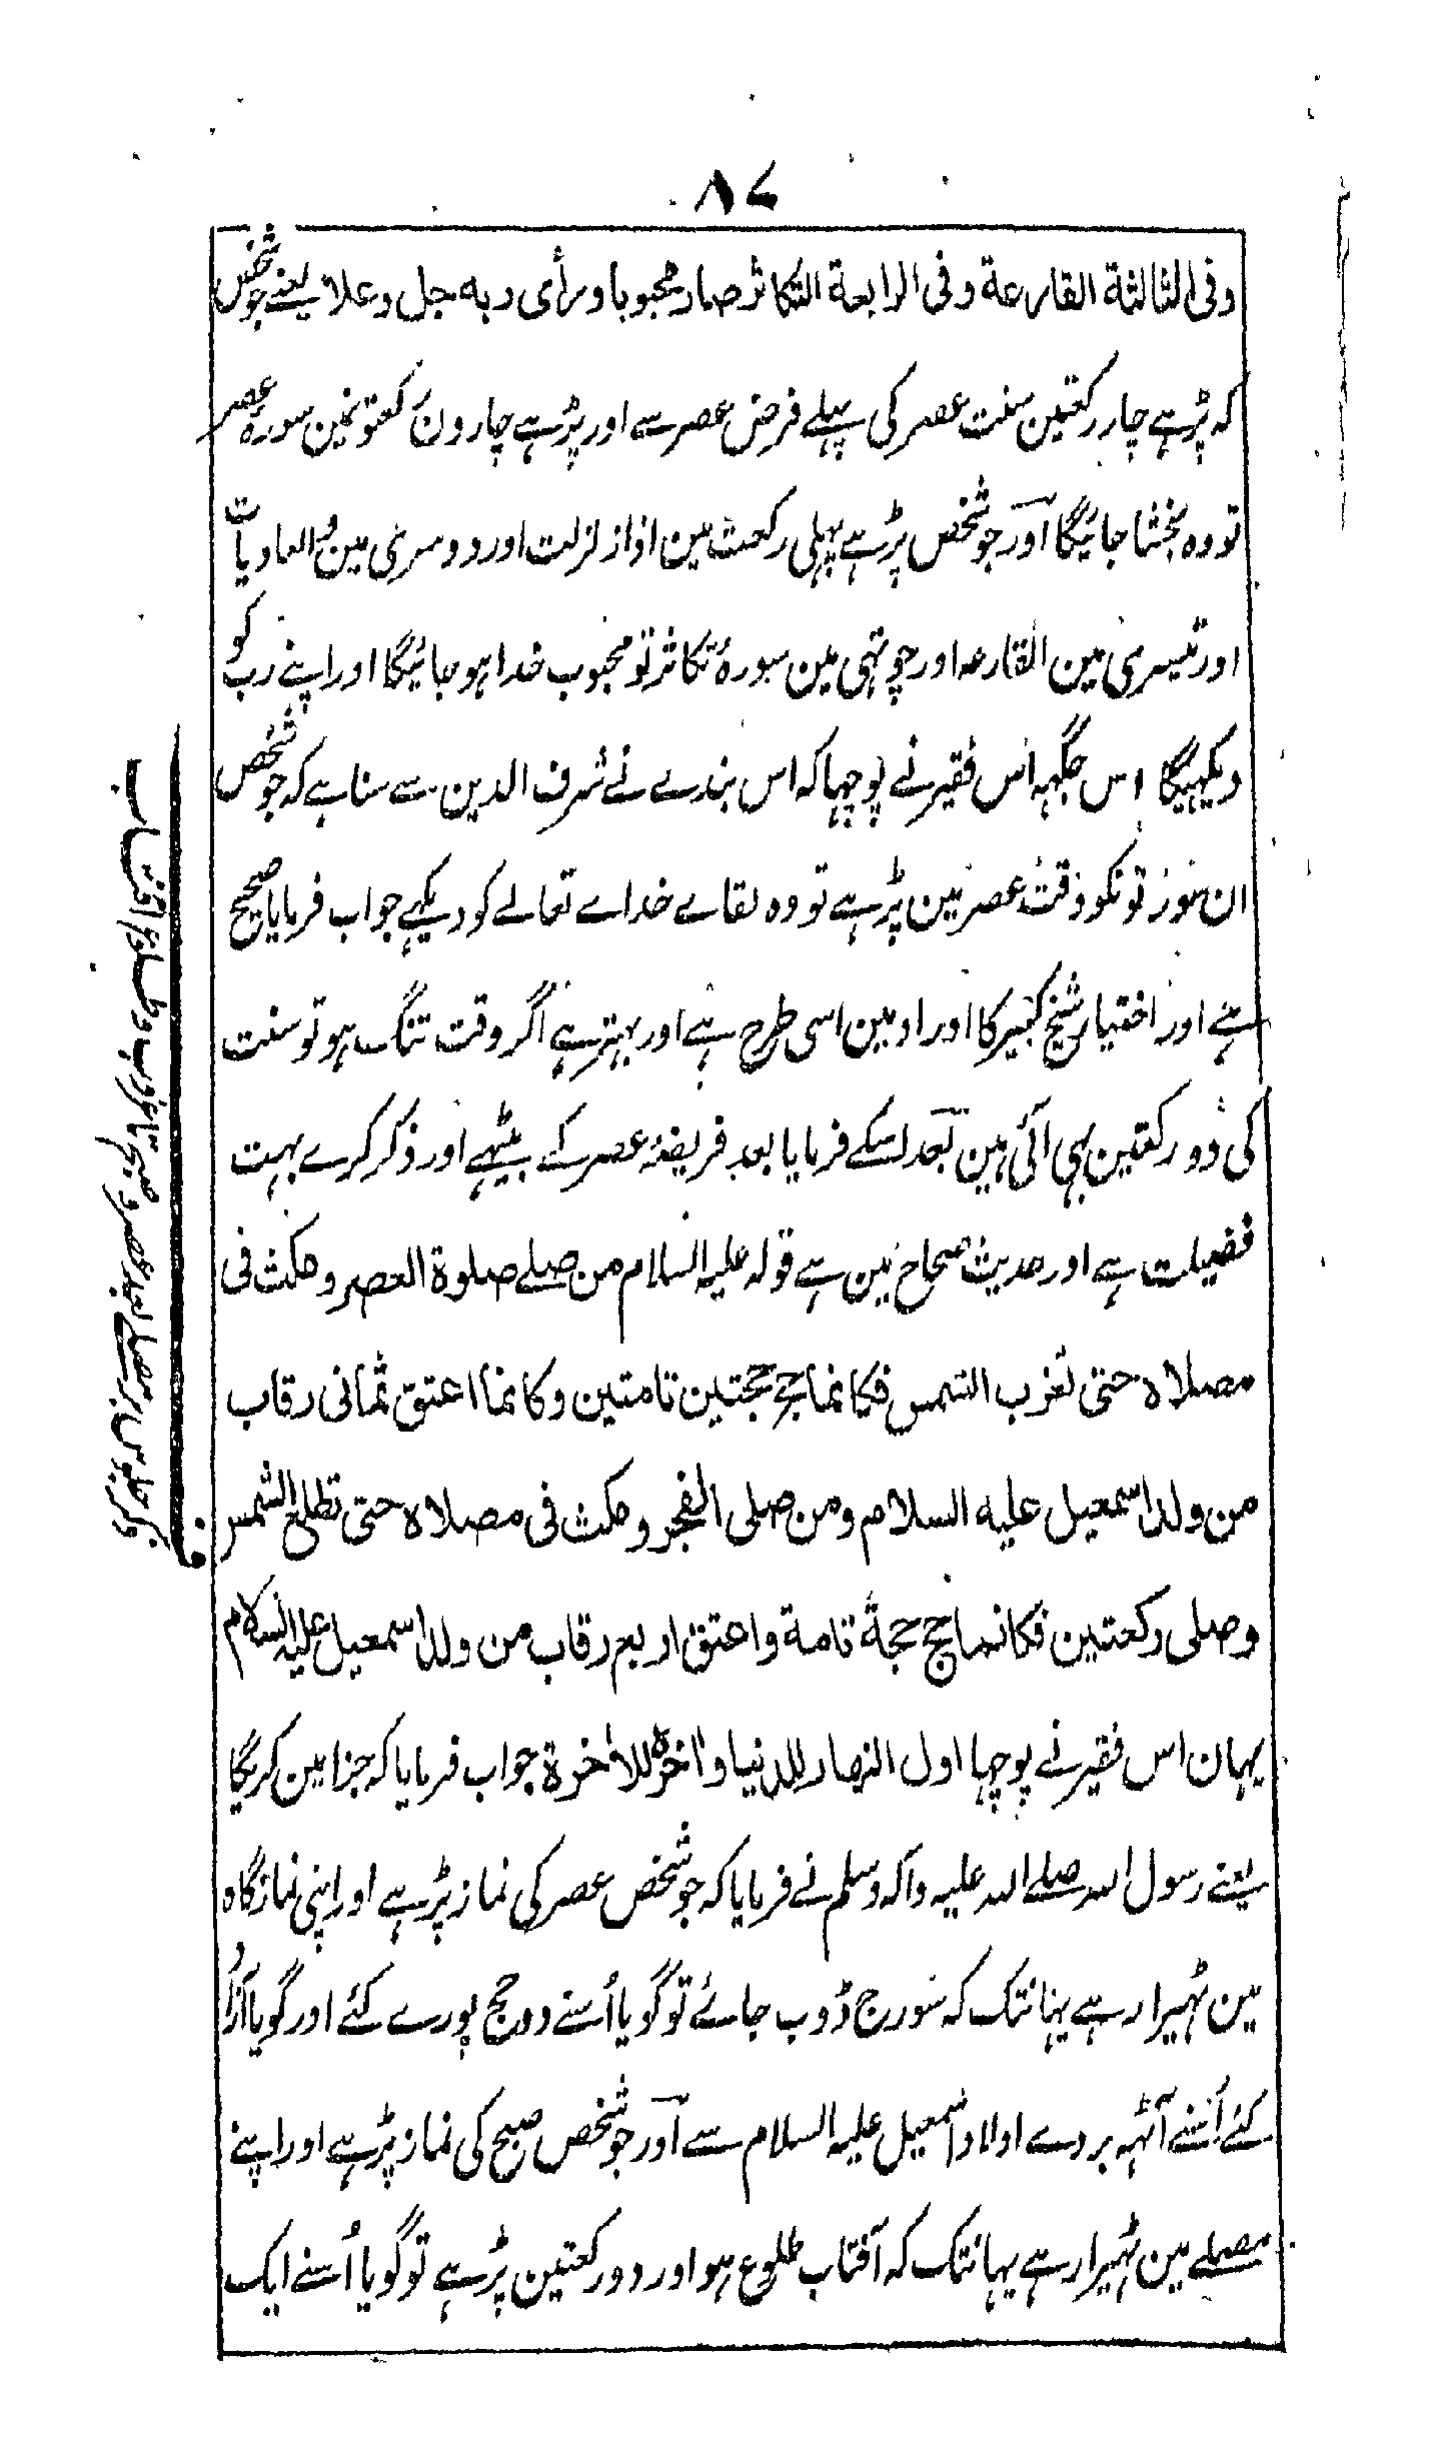 ۸۷
وفی الثالثة القارعة وفی الرابعة التکاثر صار محبوبا ورأی ربه جل وعلا یعنے جو شخص
کہ پڑہے چار رکعتین سنت عصر کی پہلے فرض عصر سے اور پڑہے چارون رکعتونمین سورۂ عصر
تو وہ بخشا جائیگا اور جو شخص پڑہے پہلی رکعت مین اذا زلزلت اور دوسری مین والعادیات
اور تیسری مین القارعہ اور چوتہی مین سورۂ تکاثر تو محبوب خدا ہو جائیگا اور اپنے رب کو
دیکہیگا اس جگہہ اس فقیر نے پوچہا کہ اس بندے نے شرف الدین سے سنا ہے کہ جو شخص
ان سورتونکو وقت عصر مین پڑہے تو وہ لقاے خداے تعالے کو دیکہے جواب فرمایا صحیح
ہے اور اختیار شیخ کبیر کا اوراد مین اسی طرح ہے اور بہتر ہے اگر وقت تنگ ہو تو سنت
کی دو رکعتین بہی آئی ہین بعد اسکے فرمایا بعد فریضۂ عصر کے بیٹہے اور ذکر کرے بہت
فضیلت ہے اور حدیث صحاح مین ہے قولہ علیہ السلام من صلے صلوة العصر ومکث فی
مصلاہ حتی تغرب الشمس فکانما حج حجتین تامتین وکانما اعتق ثمانی رقاب
من ولد اسمعیل علیه السلام ومن صلی الفجر ومکث فی مصلاہ حتی تطلع الشمس
وصلی رکعتین فکانما حج حجة تامة واعتق اربع رقاب من ولد اسمعیل علیہ السلام
یہان اس فقیر نے پوچہا اول النهار للدنیا واخره للاخرة جواب فرمایا کہ جزا مین کریگا
یعنے رسول اللہ صلے اللہ علیہ وآلہ وسلم نے فرمایا کہ جو شخص عصر کی نماز پڑہے اور اپنی نمازگاہ
مین ٹہیرا رہے یہانتک کہ سورج ڈوب جاے تو گویا اُسنے دو حج پورے کئے اور گویا آزاد
کئے اُسنے آٹہہ بردے اولاد اسمعیل علیہ السلام سے اور جو شخص صبح کی نماز پڑہے اور اپنے
مصلے مین ٹہیرا رہے یہانتک کہ آفتاب طلوع ہو اور دو رکعتین پڑہے تو گویا اُسنے ایک